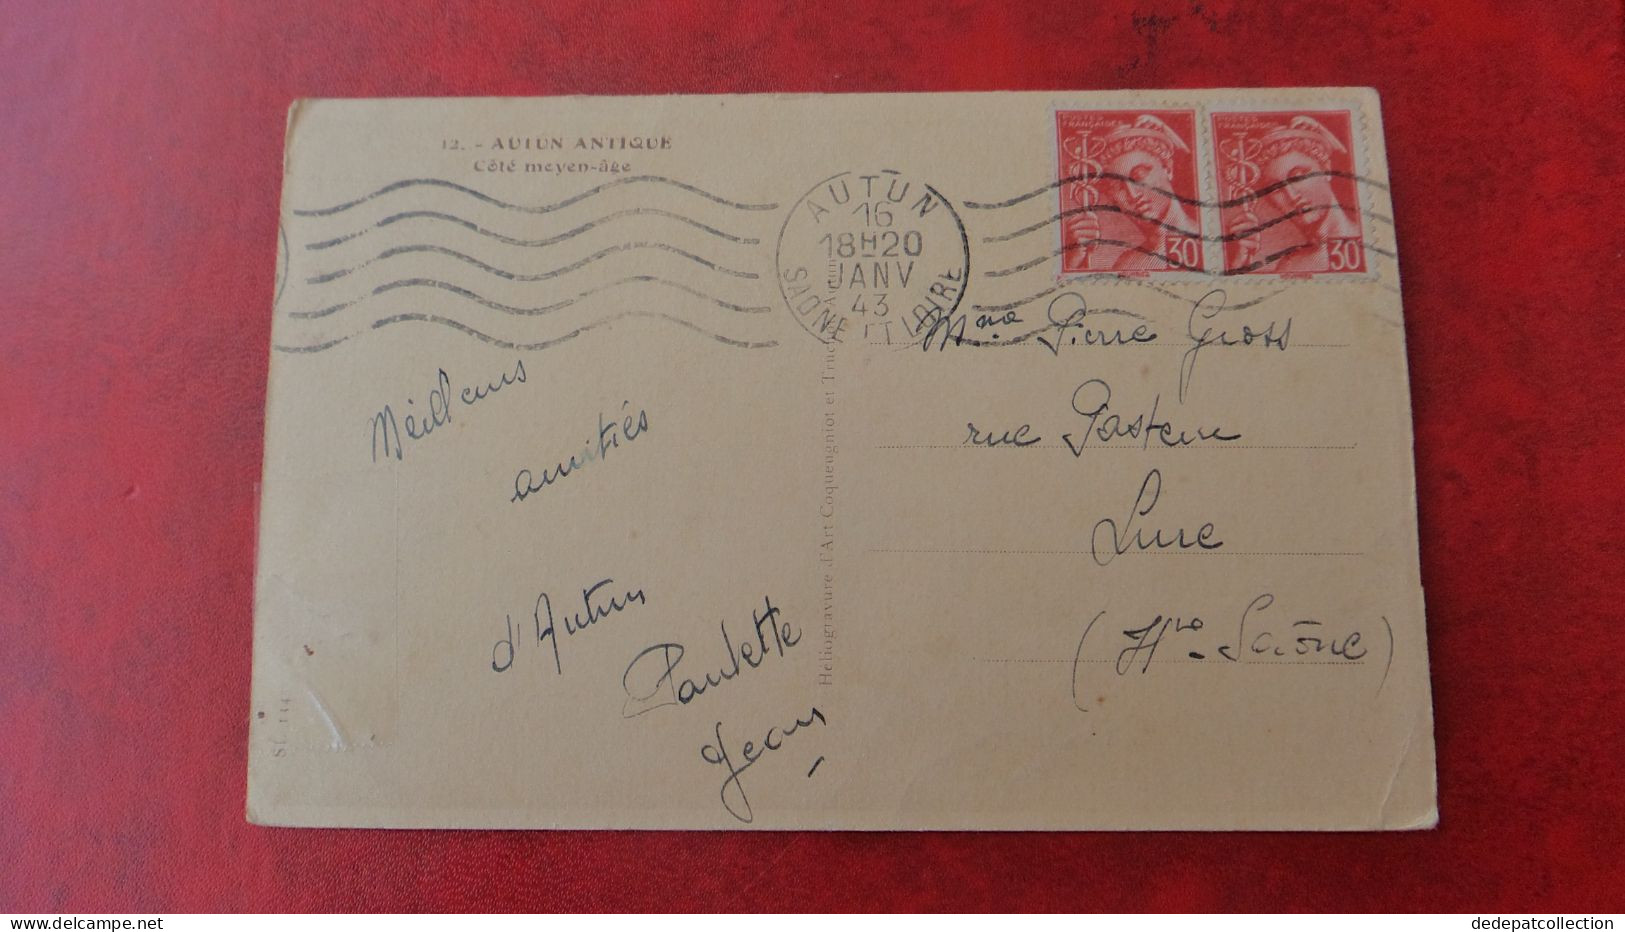 12. - AUTUN ANTIQUE
Côté moyen-âge
AUTUN
16
18H20
JANV
43
SAONE ET LOIRE
POSTES
FRANÇAISES
30
POSTES
FRANÇAISES
30
Meilleurs
amitiés
d'Autun
Paulette
Jean
Héliogravure d'Art Coqueugniot et
Mme Pierre Gross
rue Pasteur
Lure
(Hte-Saône)
dedepatcollection